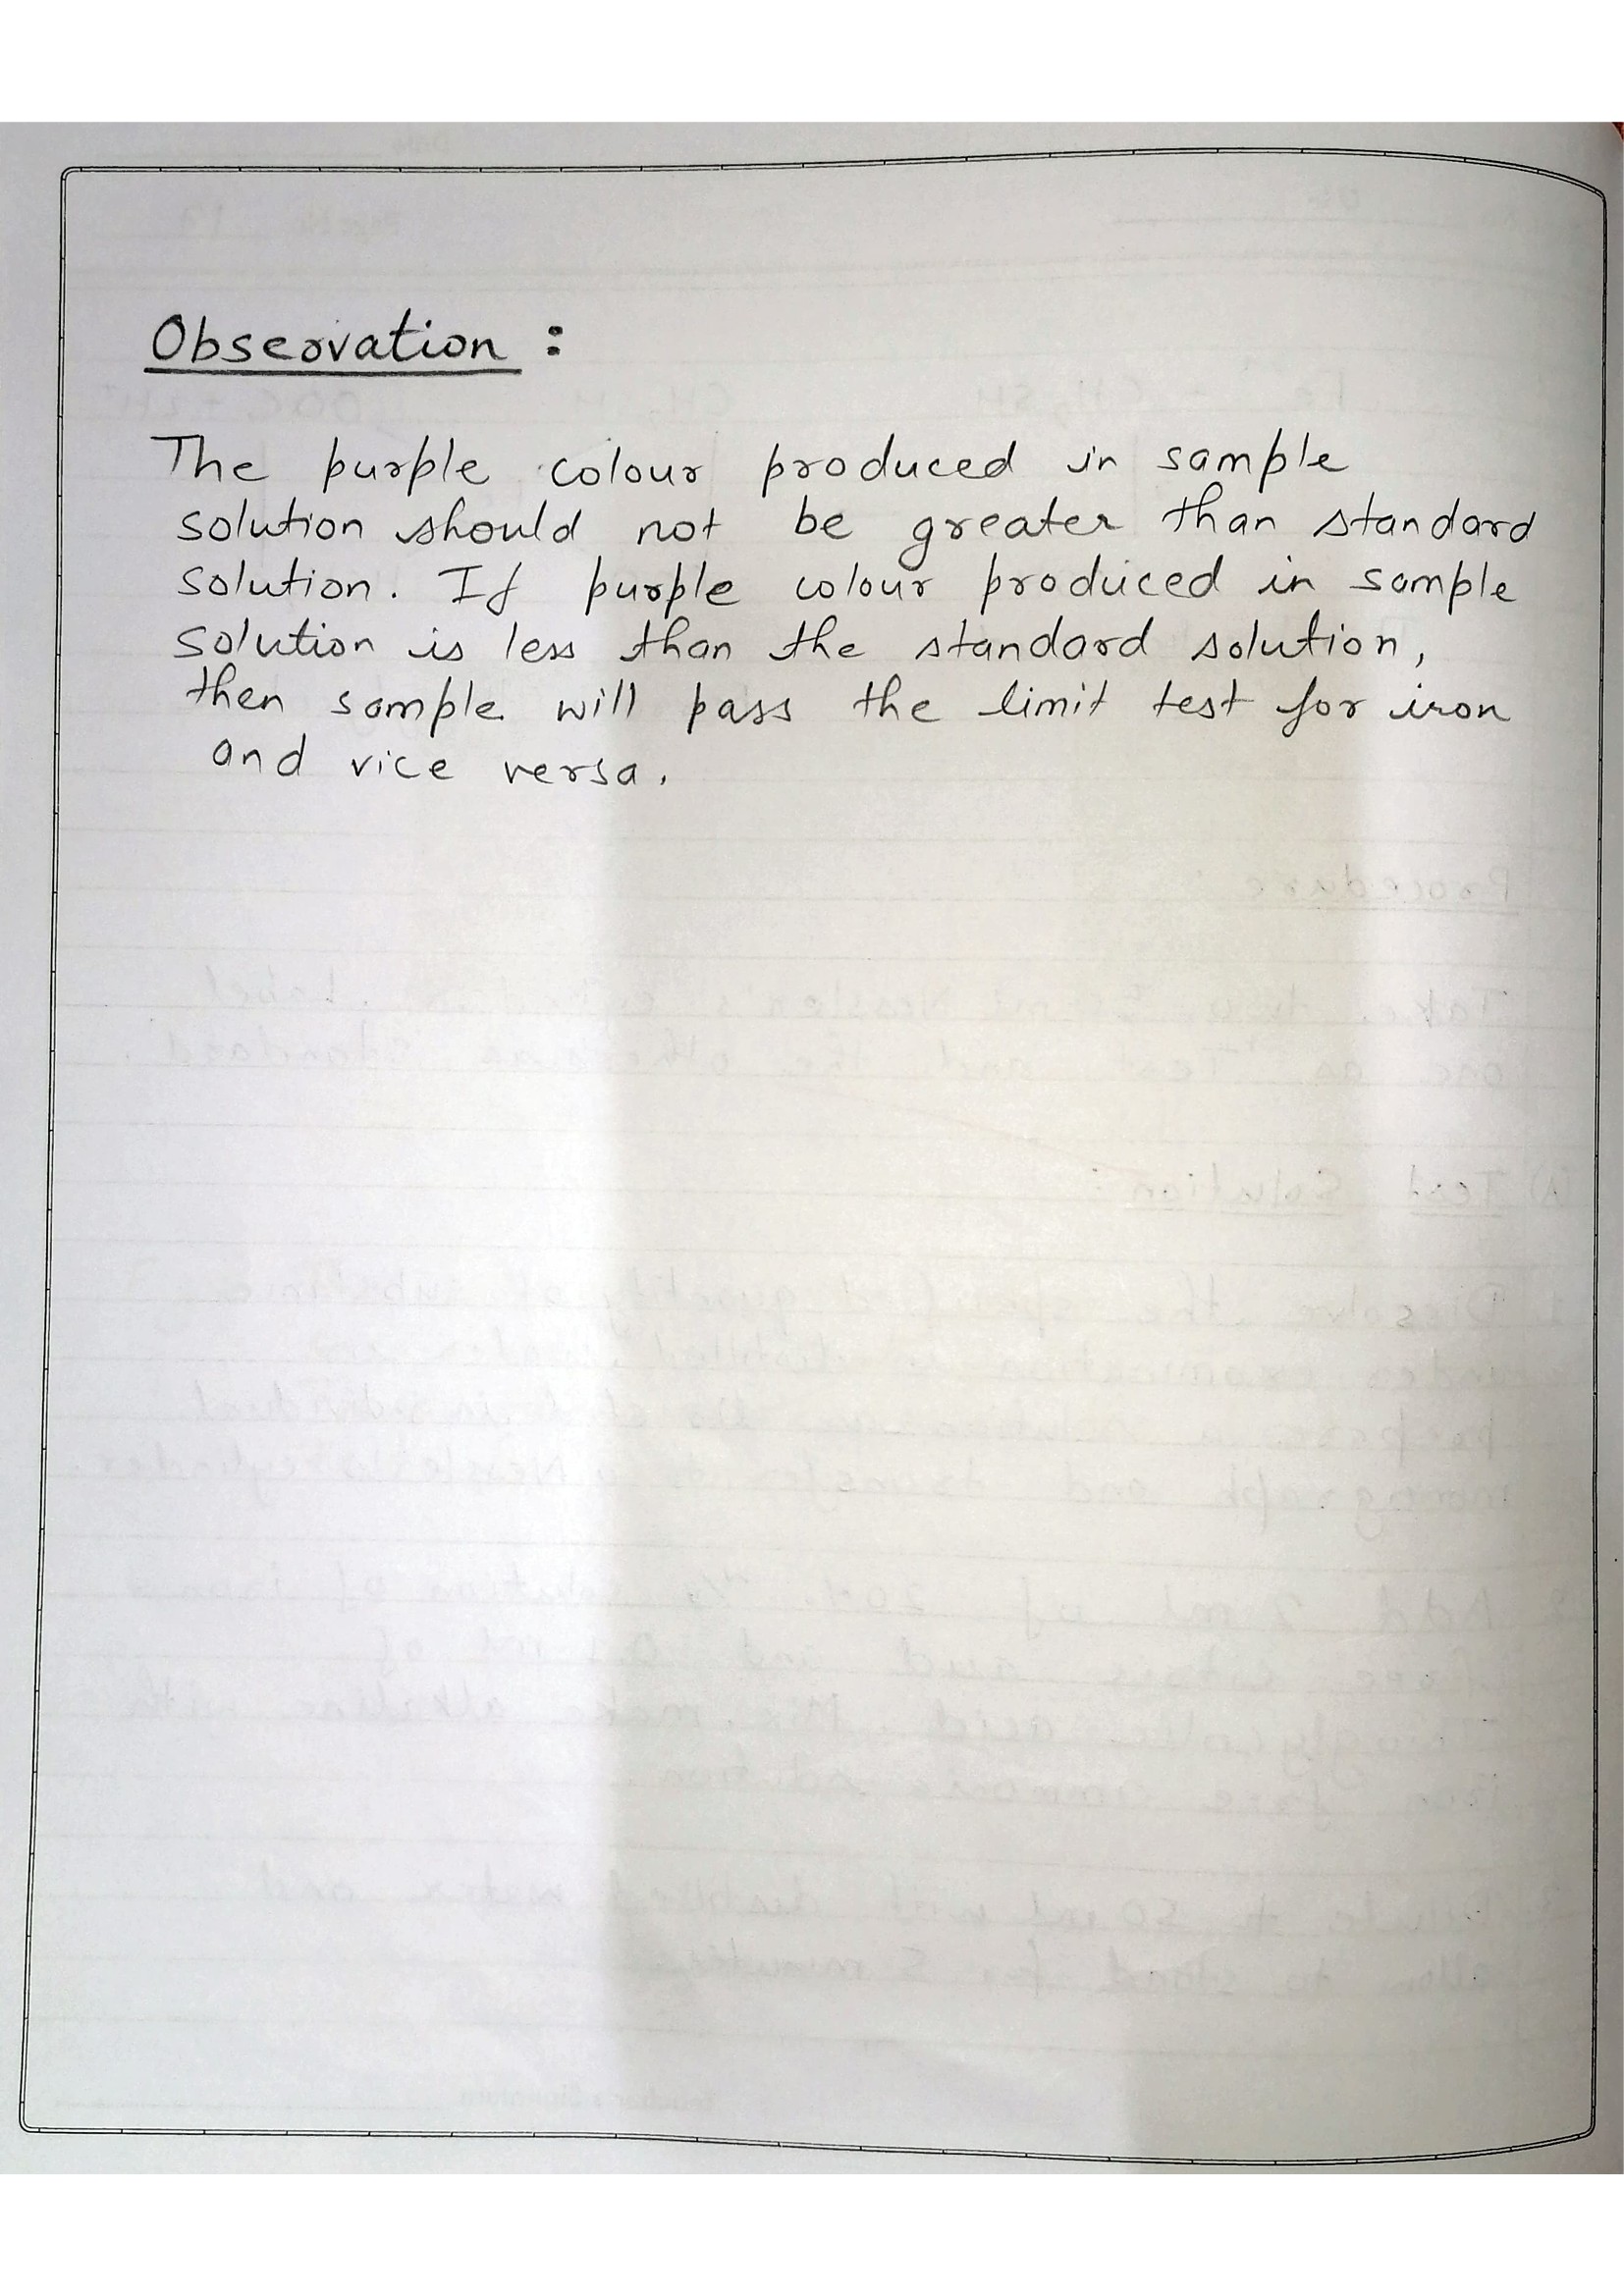 Observation :
The purple colour produced in sample
solution should not be greater than standard
solution. If purple colour produced in sample
solution is less than the standard solution,
then sample will pass the limit test for iron
and vice versa.